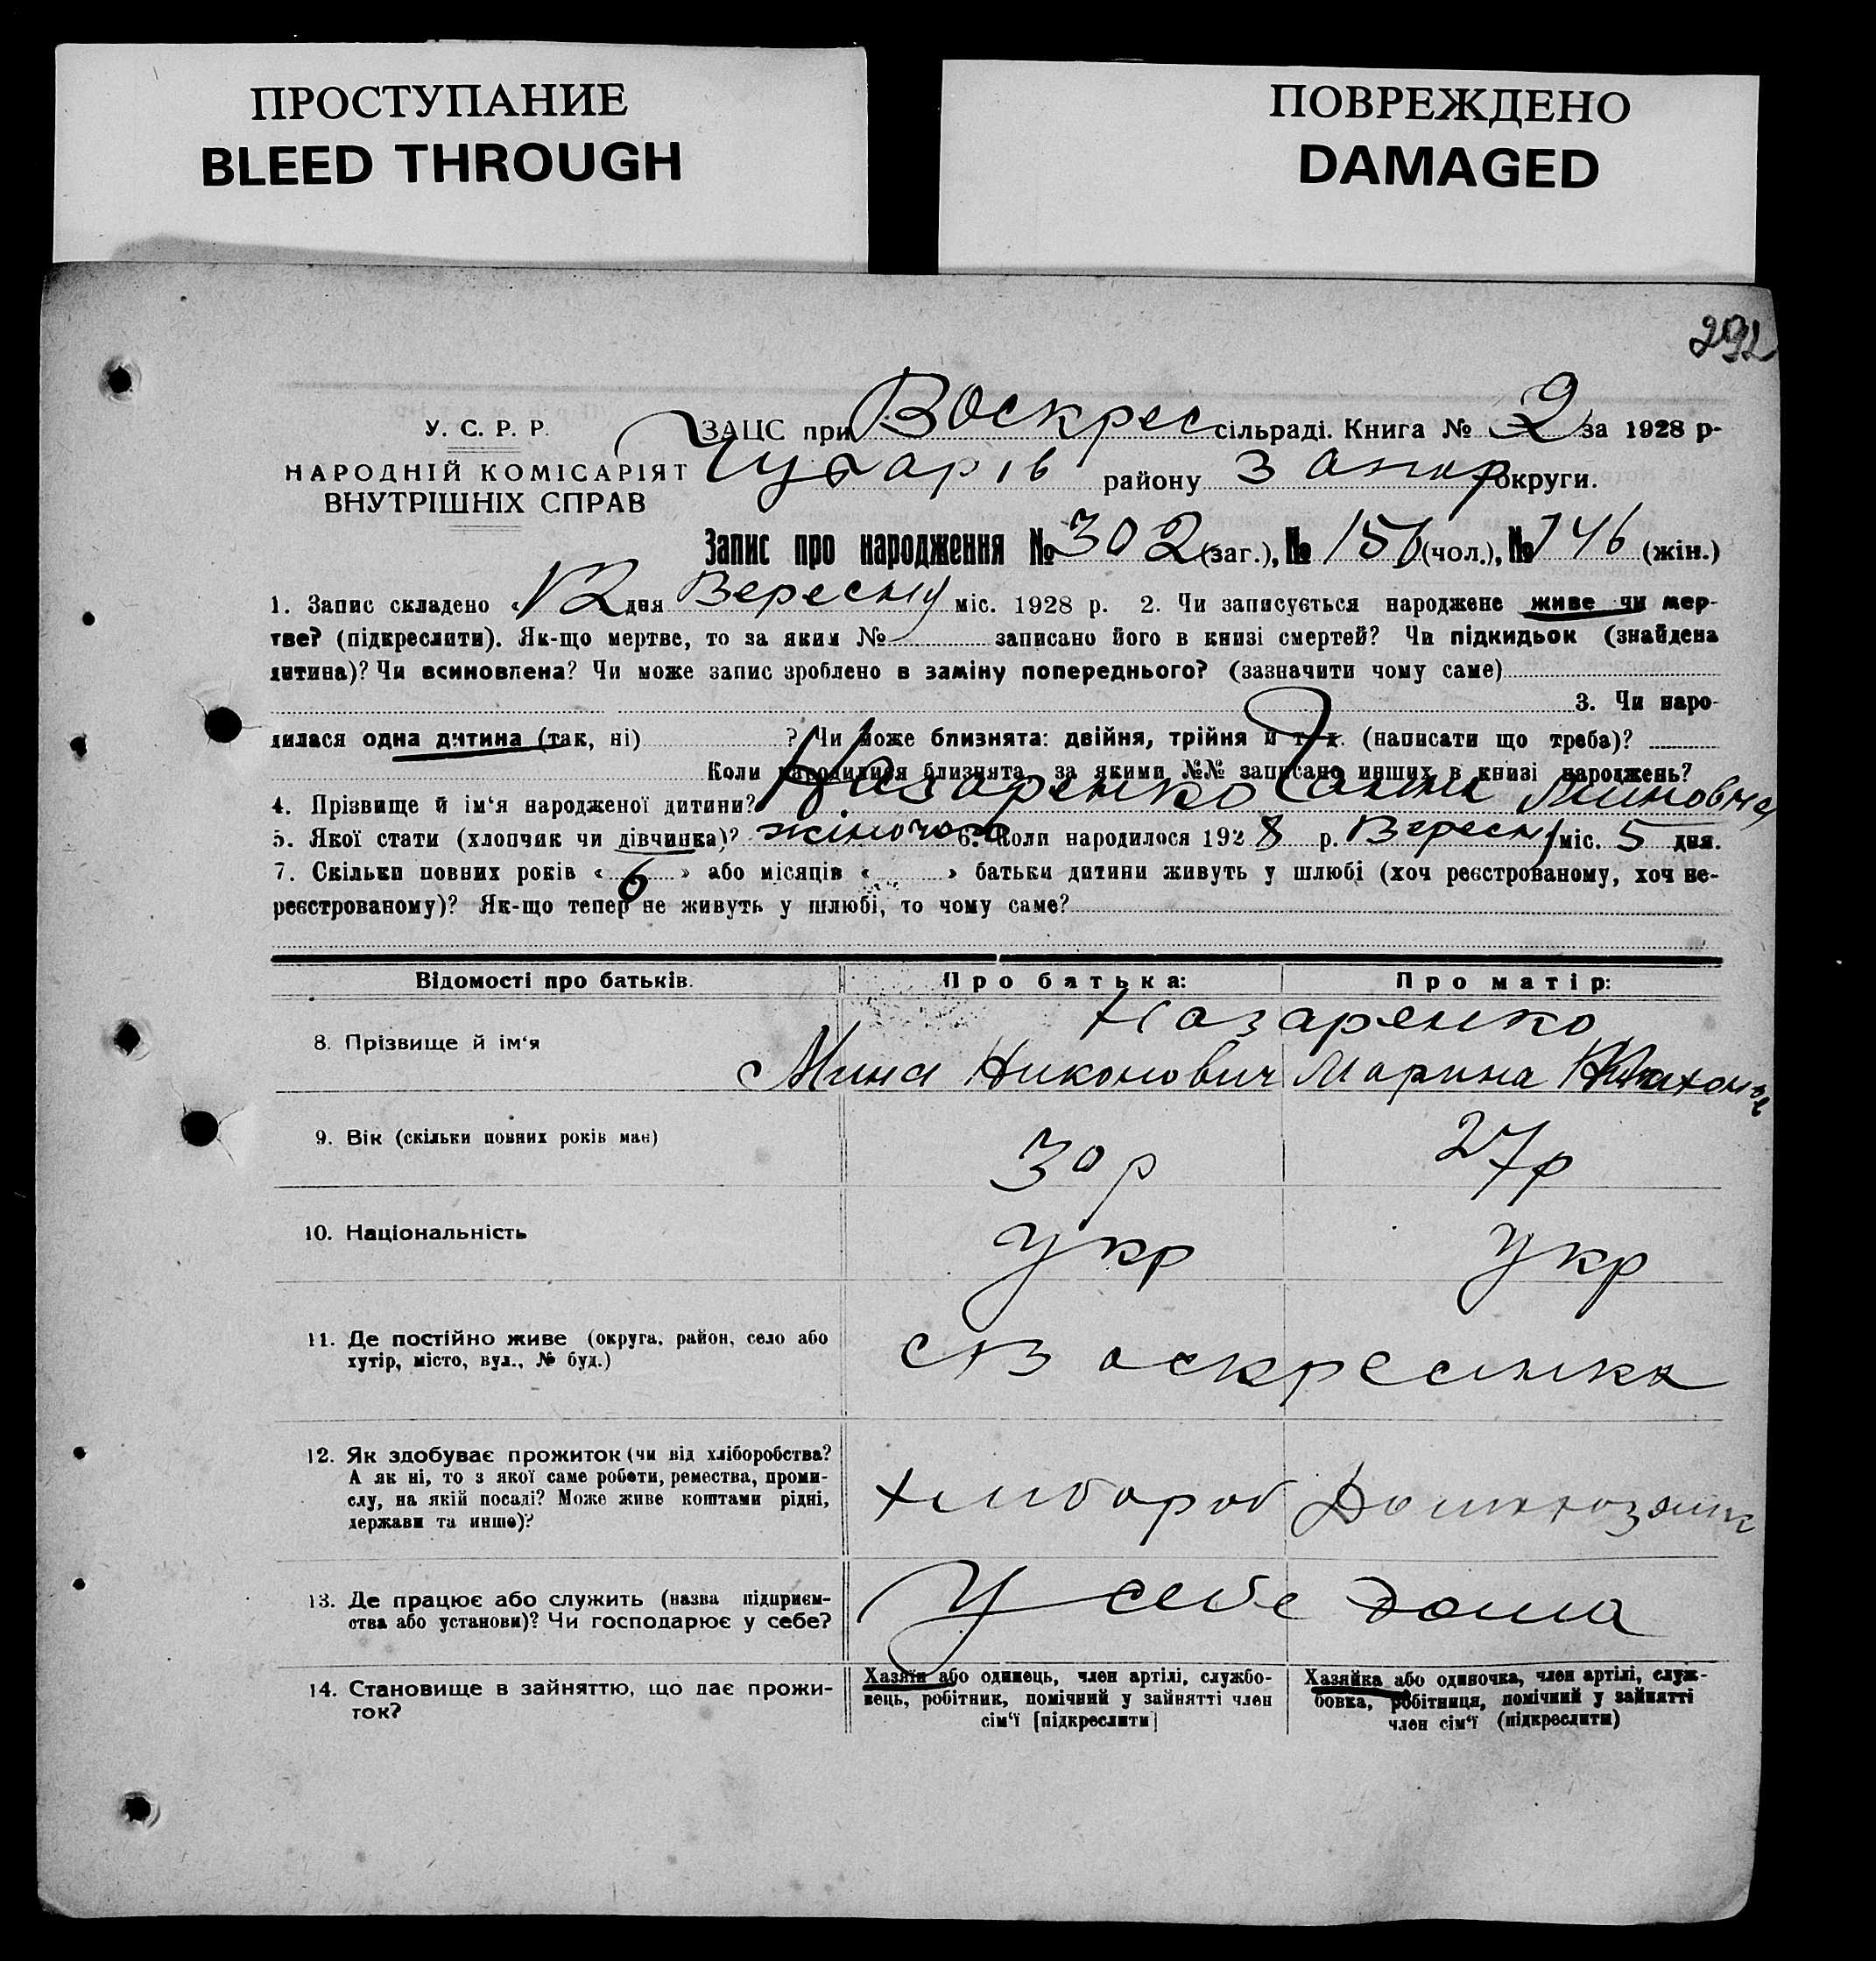 ПРОСТУПАНИЕ
BLEED THROUGH
ПОВРЕЖДЕНО
DAMAGED
292
У. С. Р. Р.
НАРОДНІЙ КОМІСАРІЯТ
ВНУТРІШНІХ СПРАВ
ЗАЦС при Воскрес сільраді. Книга № 2 за 1928 р-
Чубарів району Запор округи.
Запис про народження № 302 (заг.), № 156 (чол.), № 146 (жін.)
1. Запис складено « 12 дня Вересня міс. 1928 р. 2. Чи записується народжене живе чи мер-
тве? (підкреслити). Як-що мертве, то за яким № записано його в книзі смертей? Чи підкидьок (знайдена
дитина)? Чи всиновлена? Чи може запис зроблено в заміну попереднього? (зазначити чому саме)
3. Чи наро-
дилася одна дитина (так, ні) ? Чи може близнята: двійня, трійня й т. д. (написати що треба)?
Коли народилися близнята, за якими №№ записано инших в книзі народжень?
4. Прізвище й ім'я народженої дитини? Назаренко Миновна
5. Якої стати (хлопчик чи дівчинка)? жіночого 6. Коли народилося 1928 р. Вересня міс. 5 дня.
7. Скільки повних років « 6 » або місяців « » батьки дитини живуть у шлюбі (хоч реєстрованому, хоч не-
реєстрованому)? Як-що тепер не живуть у шлюбі, то чому саме?
Відомості про батьків. Про батька: Про матір:
8. Прізвище й ім'я Назаренко
Мина Никонович Марина
9. Вік (скільки повних років має) 30 р 27 р
10. Національність Укр Укр
11. Де постійно живе (округа, район, село або
хутір, місто, вул., № буд.) с Воскресенка
12. Як здобуває прожиток (чи від хліборобства?
А як ні, то з якої саме роботи, ремества, проми-
слу, на якій посаді? Може живе коштами рідні,
держави та инше)?
Хлибороб
13. Де працює або служить (назва підприєм-
ства або установи)? Чи господарює у себе?
У себе дома
14. Становище в зайняттю, що дає прожи-
ток?
Хазяїн або одинець, член артілі, службо-
вець, робітник, помічний у зайнятті член
сім'ї [підкреслити]
Хазяйка або одиночка, член артілі, служ-
бовка, робітниця, помічний у зайнятті
член сім'ї (підкреслити)